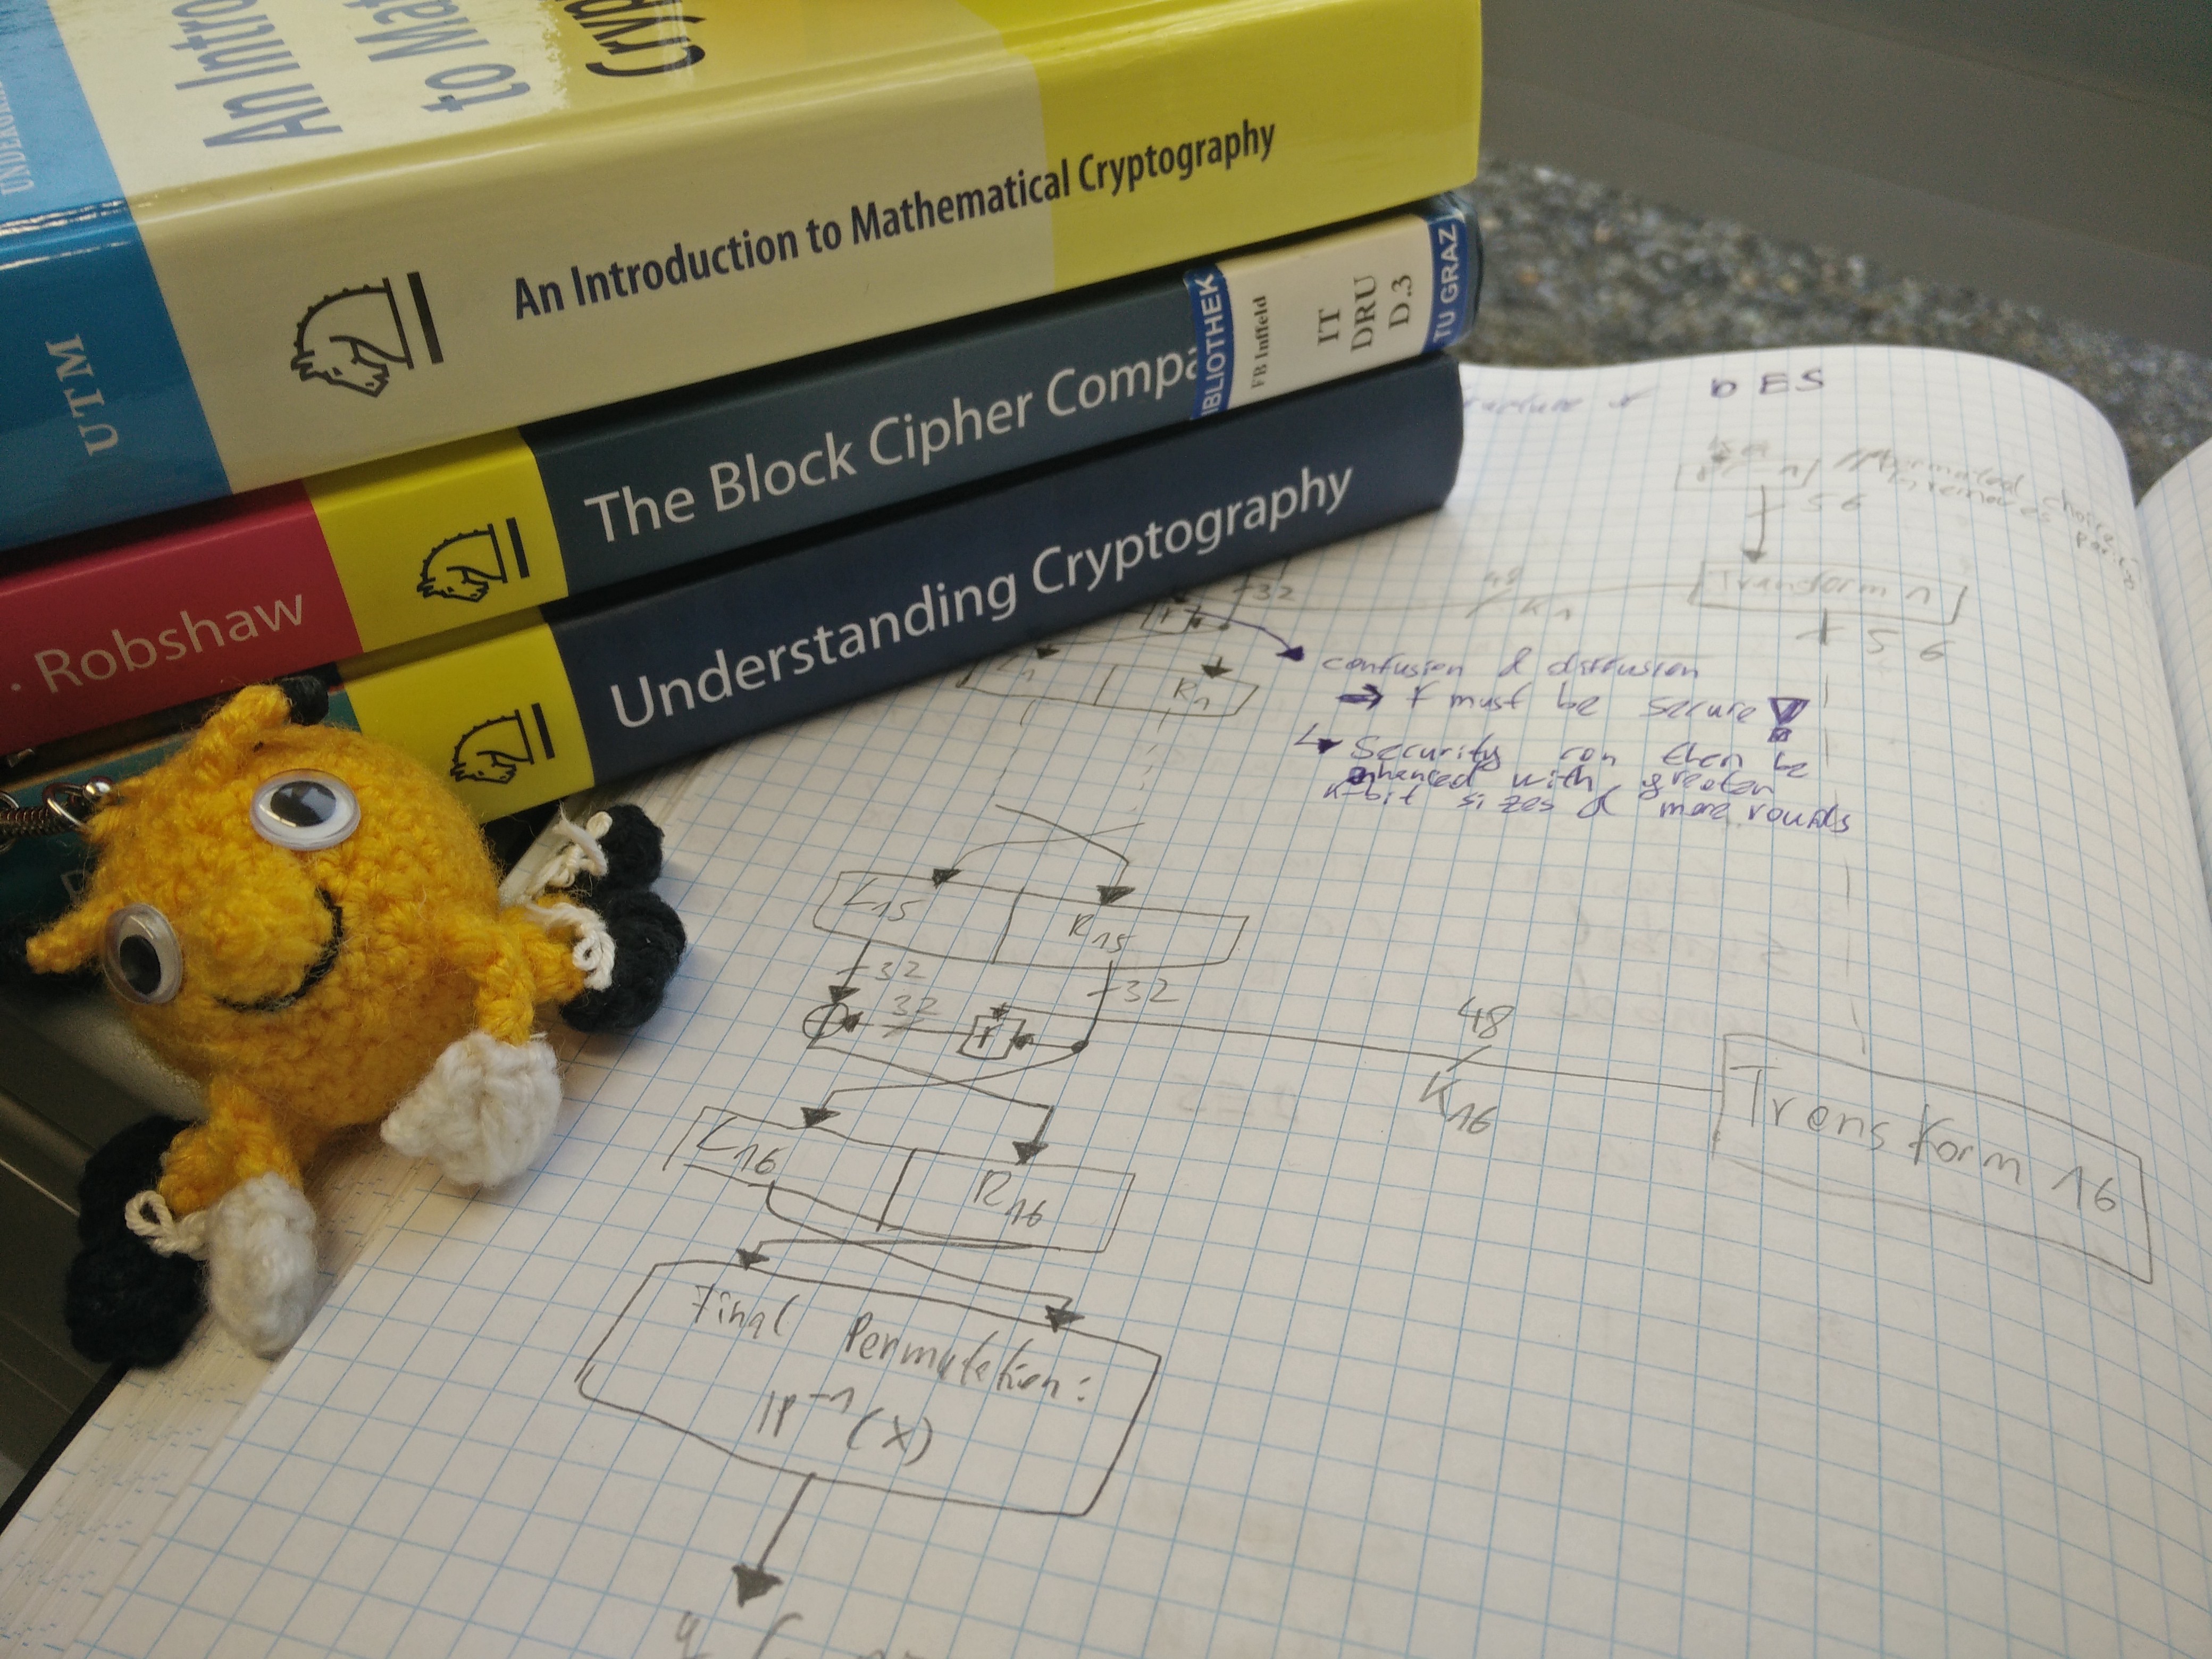 An Intro
to Mat
Cryp
UTM
An Introduction to Mathematical Cryptography
Robshaw
The Block Cipher Compa
IBLIOTHEK
FB Inffeld
IT
DRU
D.3
TU GRAZ
Understanding Cryptography
DES
56
Transform 1
56
48
K1
32
R1
confusion & diffusion
→ f must be secure
↳ Security can then be
enhanced with greater
n-bit sizes & more rounds
L15
R15
32
32
32
f
48
K16
Transform 16
L16
R16
Final Permutation:
IP-1(X)